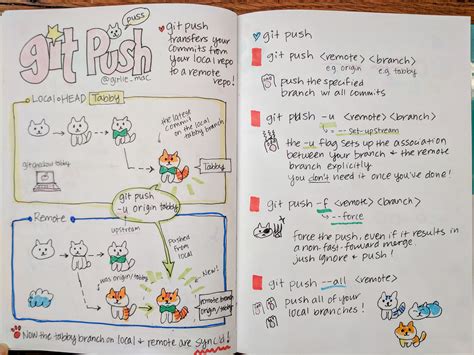 git Push
puss
@girlie_mac
git push
transfers your
commits from
your local repo
to a remote
repo!
Local HEAD Tabby
the latest
commit
on the local
tabby branch
git checkout tabby
Tabby
git push
-u origin tabby
Remote
upstream
pushed
from
local
was origin/tabby
New!
remote branch
origin/tabby
Now the tabby branch on local & remote are sync'd!
git push
git push <remote> <branch>
e.g. origin e.g. tabby
push the specified
branch w/ all commits
git push -u <remote> <branch>
--set-upstream
the -u flag sets up the association
between your branch & the remote
branch explicitly.
You don't need it once you've done!
git push -f <remote> <branch>
--force
Force the push, even if it results in
a non-fast-forward merge.
just ignore & push!
git push --all <remote>
push all of your
local branches!